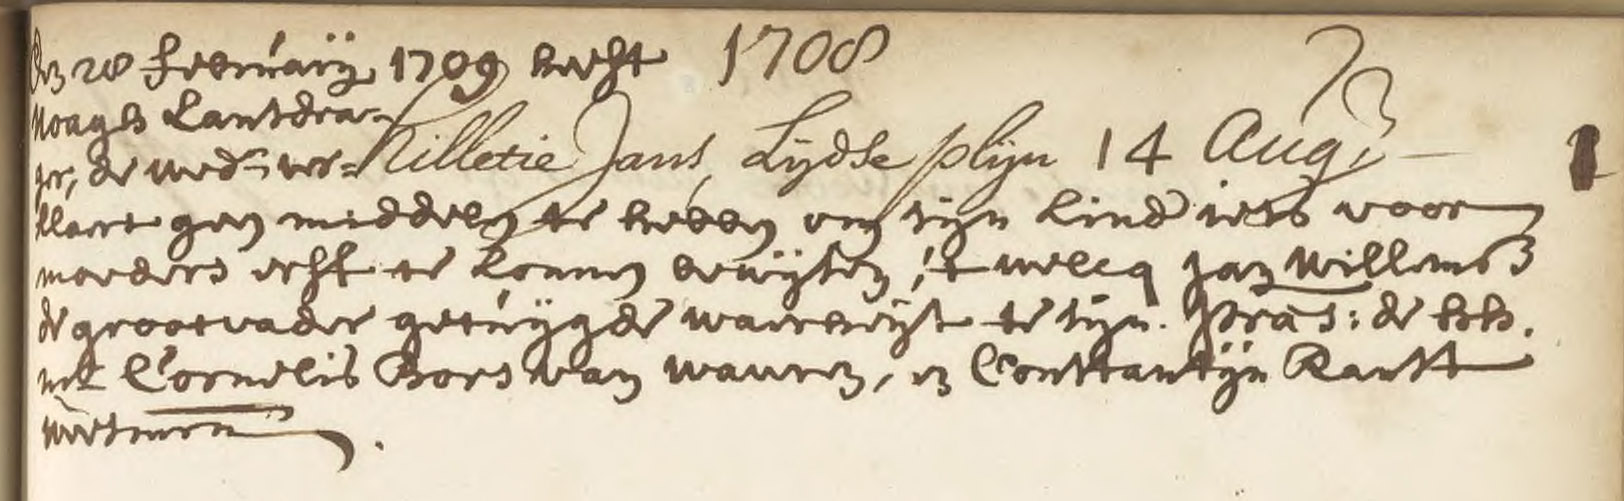 Den 28 februarij 1709 heeft 1708
Lantdra-
ger, de wed.r ver- Hilletie Jans, Lijdse plijn 14 Aug:
klaert geen middelen te hebben om sijn kind iets voor
moeders erff te konnen bewijsen, 't welcq Jan Willemsz
de grootvader getuijgde waerheijt te sijn. Præs: de hrn.
mr Cornelis Bors van Waveren, en Constantijn Ranst
weesmrn.